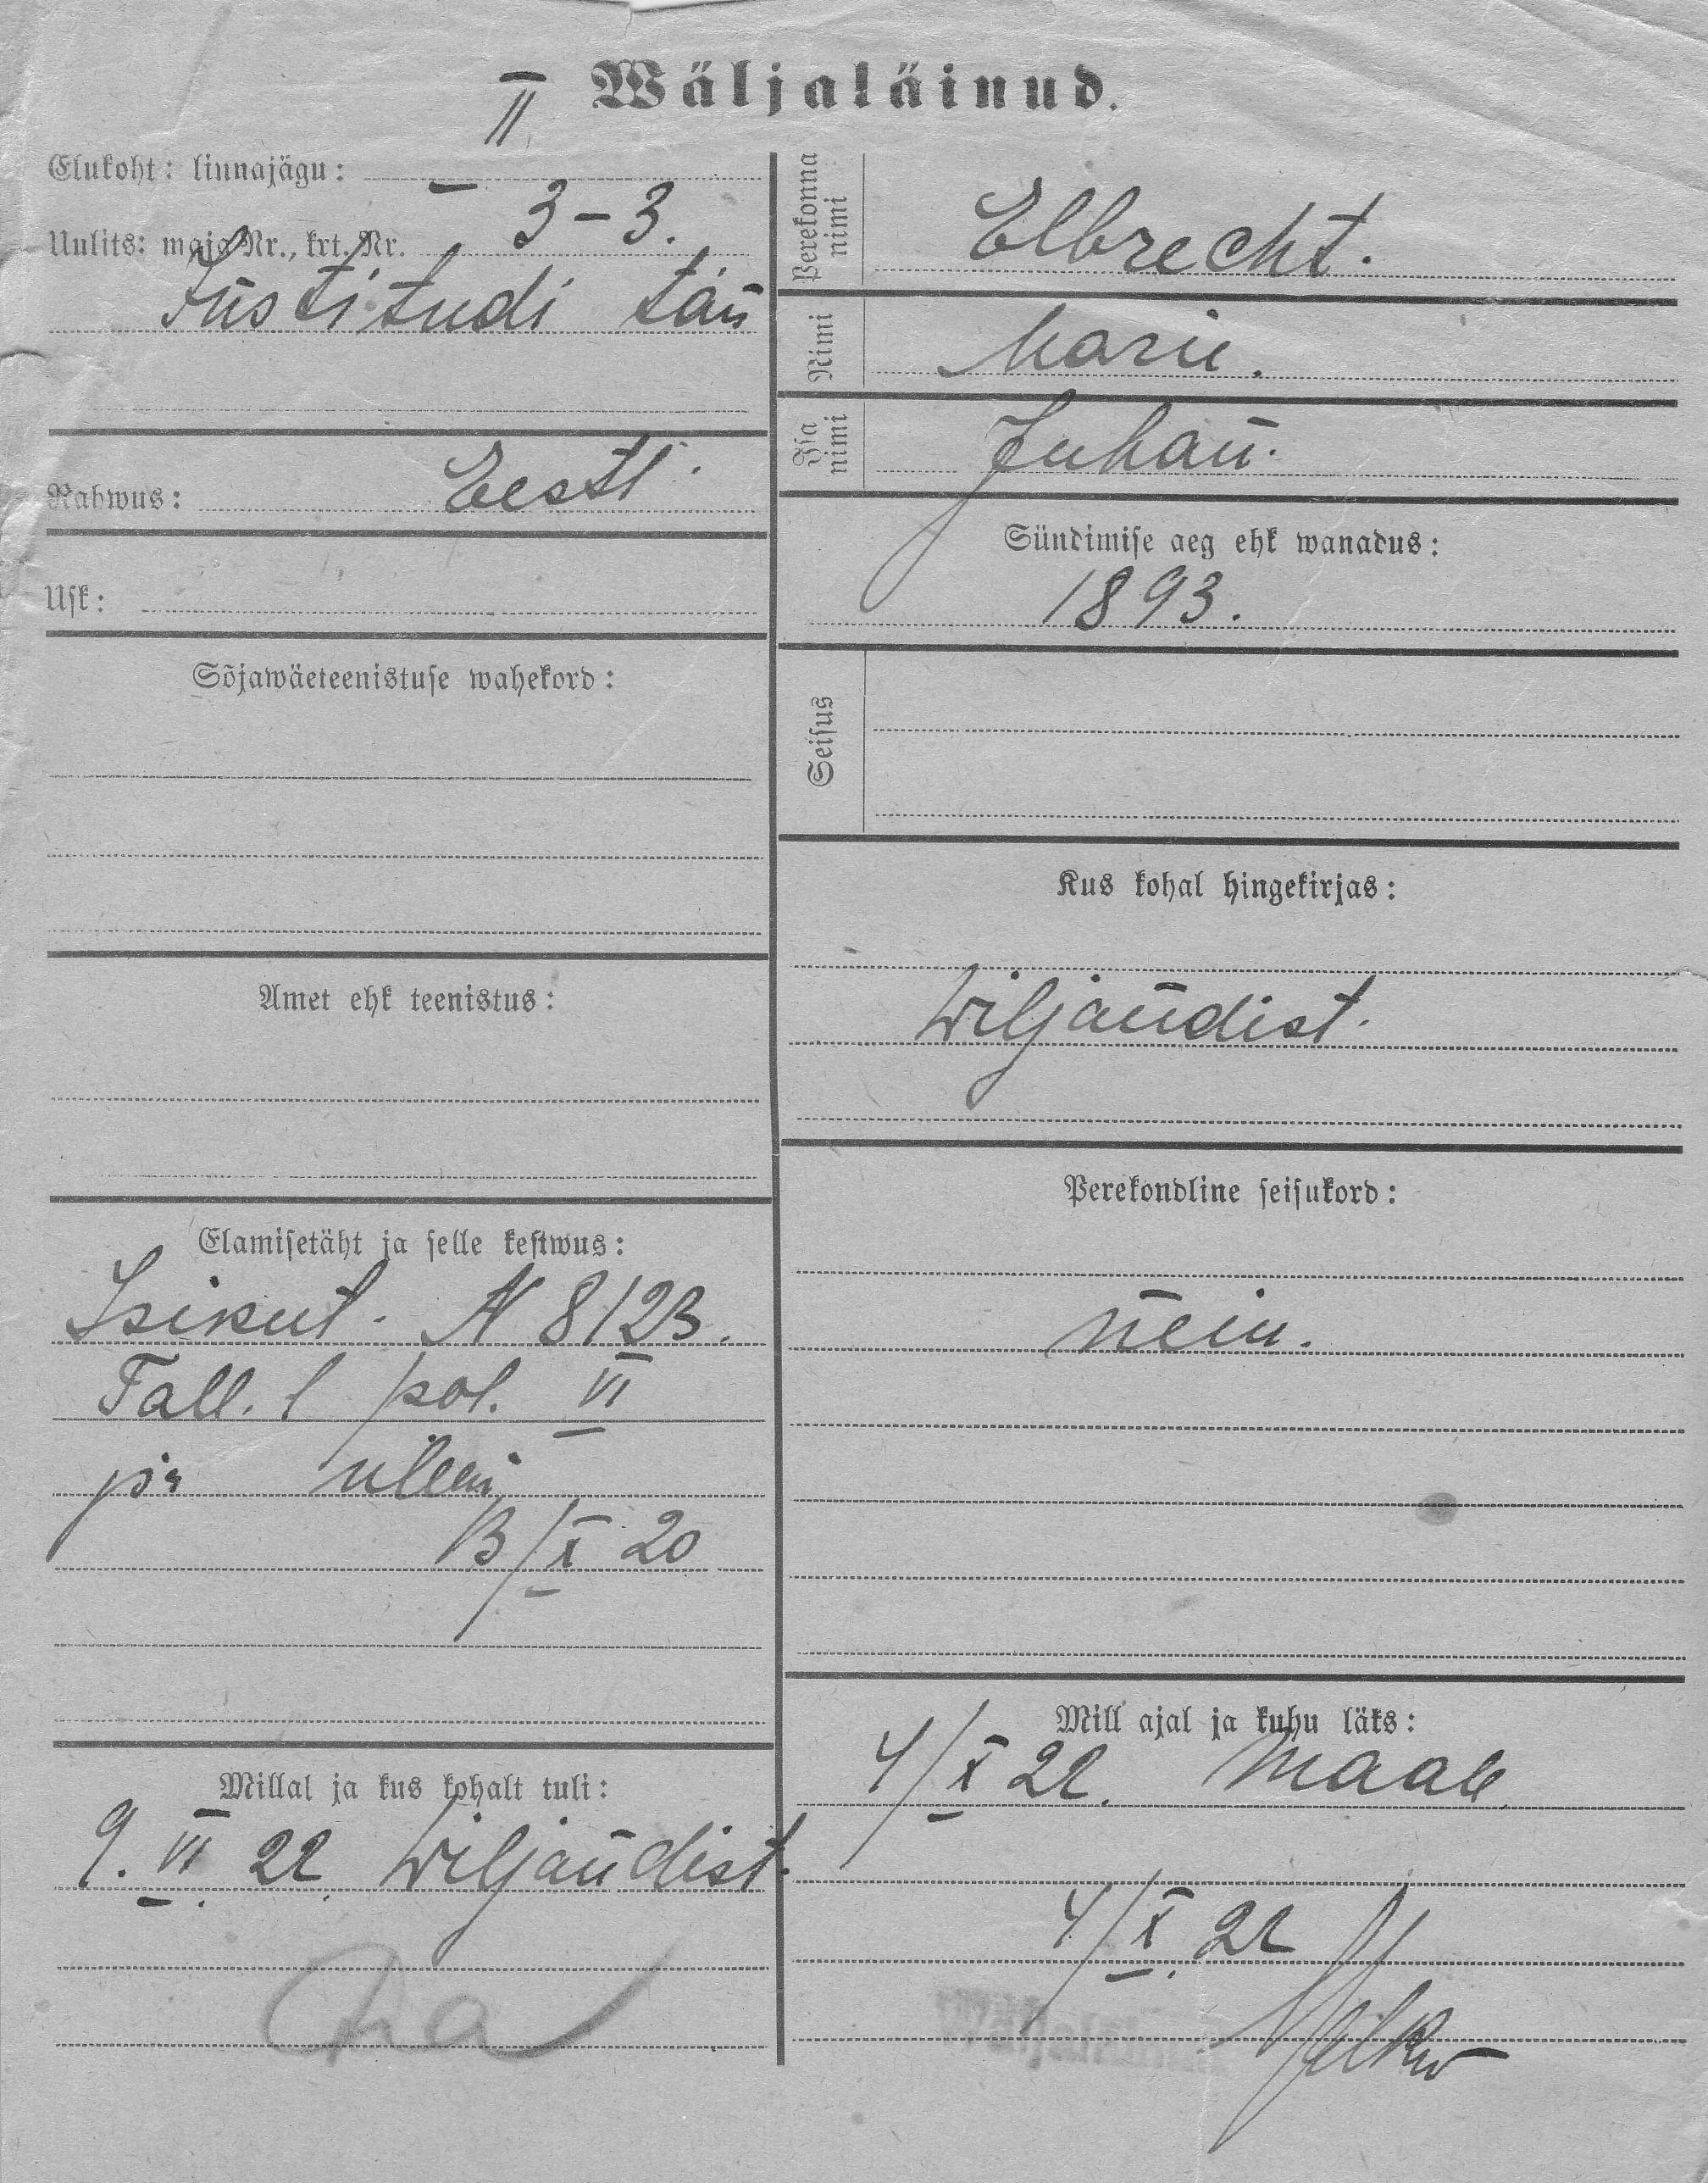 Wäljaläinud.
Elukoht: linnajägu: II
Uulits: maja Nr., krt. Nr. 3-3.
Institudi tän
Rahwus: Eesti.
Usk:
Sõjawäeteenistuse wahekord:
Amet ehk teenistus:
Elamisetäht ja selle kestwus:
Isikut. N 8123.
Tall. l pol. VI
jsk ülem
13/X 20
Millal ja kus kohalt tuli:
9. VI. 22. Wiljandist.
Perekonna nimi
Elbrecht.
Nimi
Marie.
Isa nimi
Juhan.
Sündimise aeg ehk wanadus:
1893.
Seisus
Kus kohal hingekirjas:
Wiljandist.
Perekondline seisukord:
nein.
Mill ajal ja kuhu läks:
4/X 22. Maale
4/X. 22
Wäljaläinud